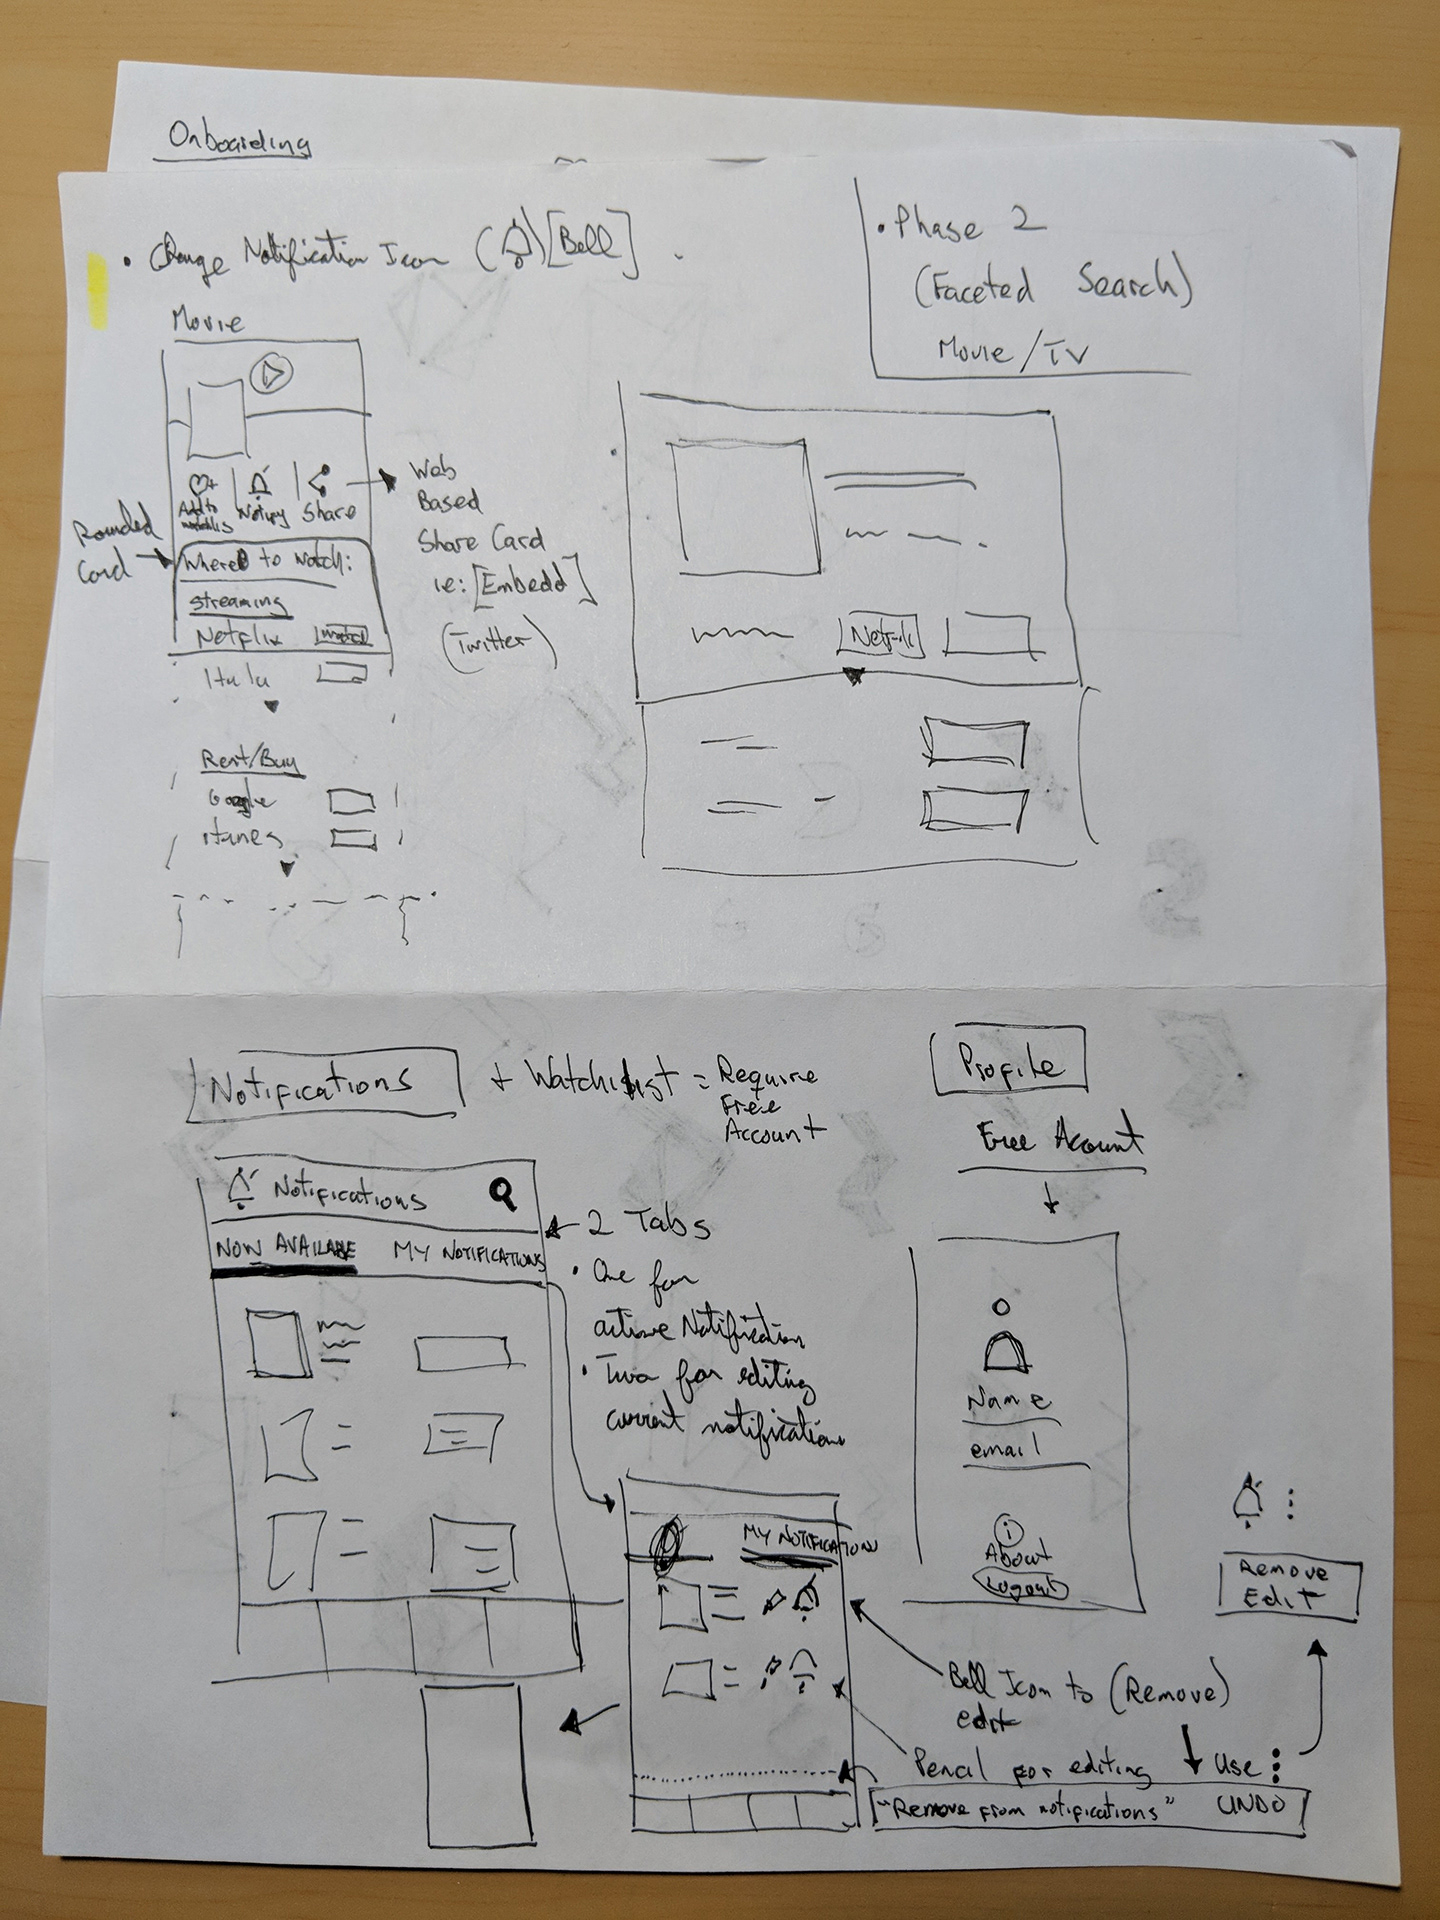 Onboarding
• Change Notification Icon ( ) [Bell]
• Phase 2
(Faceted Search)
Movie/TV
Movie
Add to
Notify
Share
Web
Based
Share Card
ie: [Embedd]
(Twitter)
Rounded
Card
Where to watch:
Streaming
Netflix
Hulu
Rent/Buy
Google
itunes
Netflix
Notifications
+ Watchlist = Require
Free
Account
Profile
Free Acount
Notifications
NOW AVAILABLE
MY NOTIFICATIONS
2 Tabs
• One for
active Notification
• Two for editing
current notifications
Name
email
i
About
Logout
MY NOTIFICATIONS
Remove
Edit
Bell Icon to (Remove)
edit
Pencil for editing
Use :
"Remove from notifications" UNDO